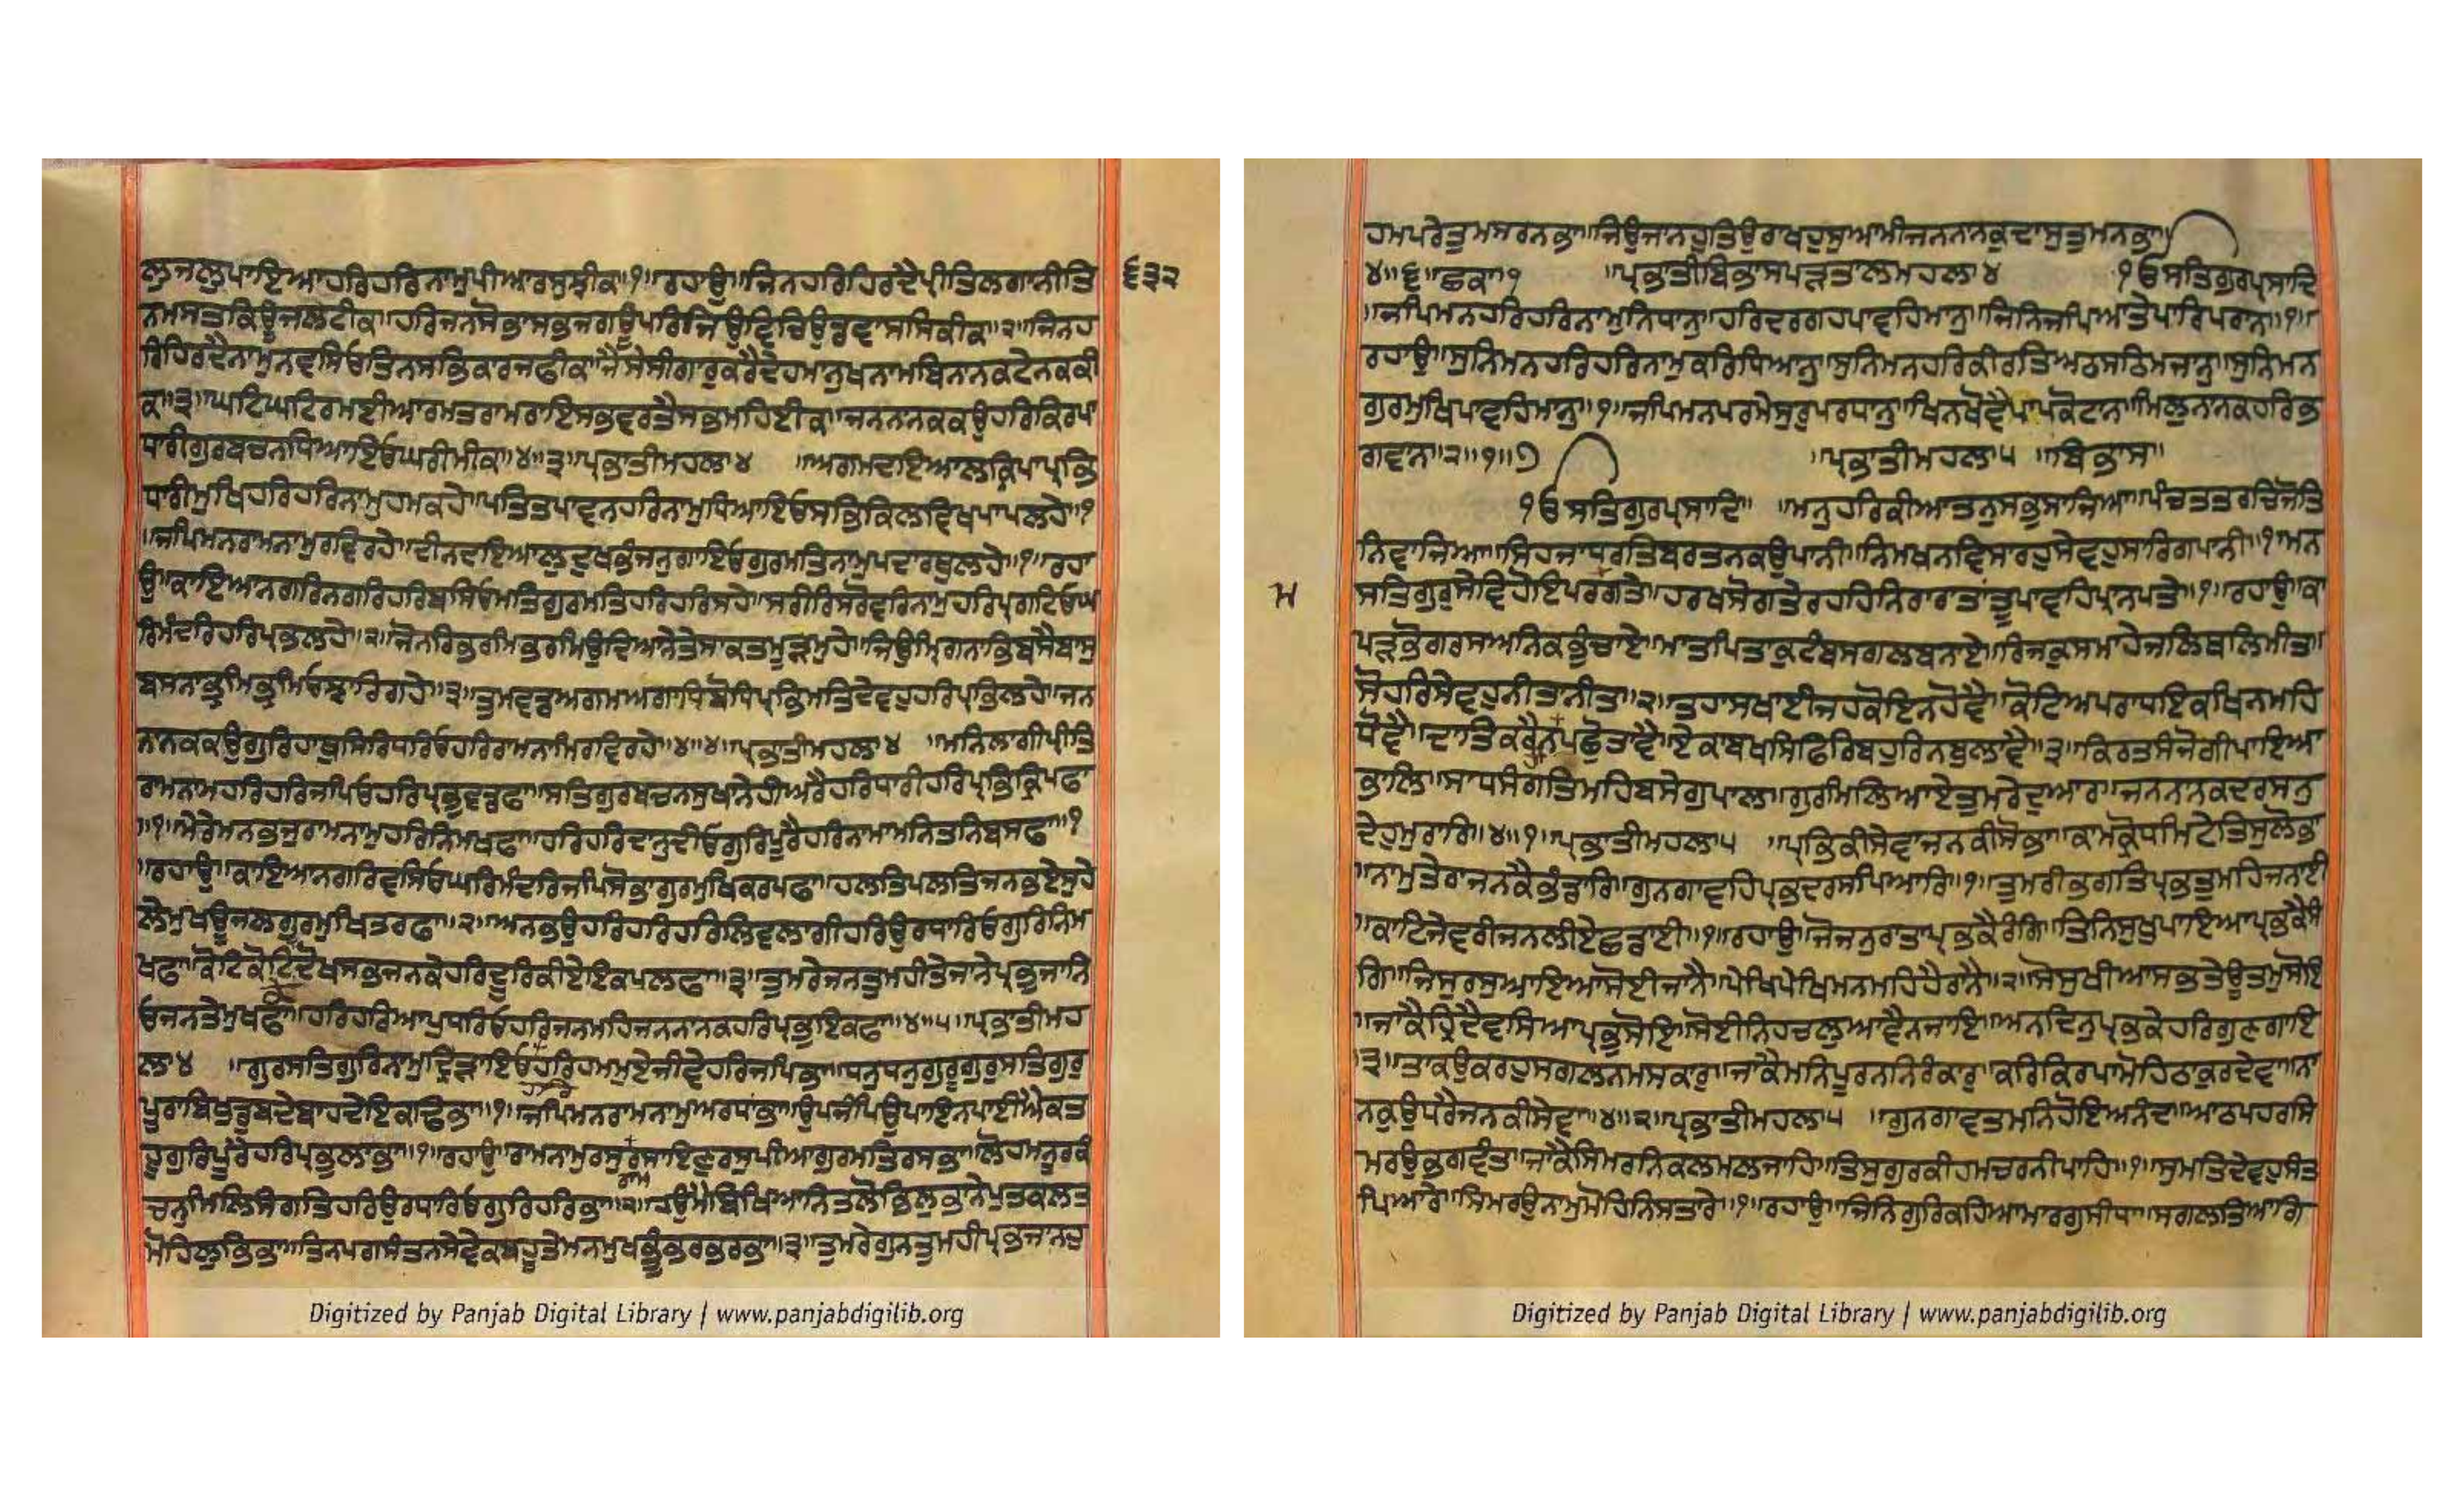 ਲੁਜਲੁਪਾਇਆਹਰਿਹਰਿਨਾਮੁਪੀਆਰਸੁਝੀਕਾ॥੧॥ਰਹਾਉ॥ਜਿਨਹਰਿਹਿਰਦੈਪ੍ਰੀਤਿਲਗਾਨੀਤਿ
੬੩੨
ਨਮਸਤਕਿਊਜਲਟੀਕਾ॥ਹਰਿਜਨਸੋਭਾਸਭਜਗਊਪਰਿਜਿਉਵਿਚਿਉਡਵਾਸਸਿਕੀਕਾ॥੨॥ਜਿਨਹ
ਰਿਹਿਰਦੈਨਾਮੁਨਵਸਿਓਤਿਨਸਭਿਕਾਰਜਫੀਕਾ॥ਜੈਸੇਸੀਗਾਰੁਕਰੈਦੇਹਮਾਨੁਖਨਾਮਬਿਨਾਨਕਟੇਨਕਕੀ
ਕਾ॥੩॥ਘਟਿਘਟਿਰਮਈਆਰਮਤਰਾਮਰਾਇਸਭਵਰਤੈਸਭਮਹਿਈਕਾ॥ਜਨਨਾਨਕਕਉਹਰਿਕਿਰਪਾ
ਧਾਰੀਗੁਰਬਚਨਧਿਆਇਓਘਰੀਮੀਕਾ॥੪॥੩॥ਪ੍ਰਭਾਤੀਮਹਲਾ੪ ॥ਅਗਮਦਇਆਲਕ੍ਰਿਪਾਪ੍ਰਭਿ
ਧਾਰੀਮੁਖਿਹਰਿਹਰਿਨਾਮੁਹਮਕਹੇ॥ਪਤਿਤਪਾਵਨਹਰਿਨਾਮੁਧਿਆਇਓਸਭਿਕਿਲਵਿਖਪਾਪਲਹੇ॥੧
॥ਜਪਿਮਨਰਾਮਨਾਮੁਰਵਿਰਹੇ॥ਦੀਨਦਇਆਲੁਦੁਖਭੰਜਨੁਗਾਇਓਗੁਰਮਤਿਨਾਮੁਪਦਾਰਥੁਲਹੇ॥੧॥ਰਹਾ
ਉ॥ਕਾਇਆਨਗਰਿਨਗਰਿਹਰਿਬਸਿਓਮਤਿਗੁਰਮਤਿਹਰਿਹਰਿਸਹੇ॥ਸਰੀਰਿਸਰੋਵਰਿਨਾਮੁਹਰਿਪ੍ਰਗਟਿਓਘ
ਰਿਮੰਦਰਿਹਰਿਪ੍ਰਭਲਹੇ॥੨॥ਜੋਨਰਭਰਮਿਭਰਮਿਉਦਿਆਨੇਤੇਸਾਕਤਮੂੜਮੁਹੇ॥ਜਿਉਮ੍ਰਿਗਨਾਭਿਬਸੈਬਾਸੁ
ਬਸਨਾਭ੍ਰਮਿਭ੍ਰਮਿਓਝਾਰਿਗਹੇ॥੩॥ਤੁਮਵਡਅਗਮਅਗਾਧਿਬੋਧਿਪ੍ਰਭਿਮਤਿਦੇਵਹੁਹਰਿਪ੍ਰਭਿਲਹੇ॥ਜਨ
ਨਾਨਕਕਉਗੁਰਿਹਾਥੁਸਿਰਿਧਰਿਓਹਰਿਰਾਮਨਾਮਿਰਵਿਰਹੇ॥੪॥੪॥ਪ੍ਰਭਾਤੀਮਹਲਾ੪ ॥ਮਨਿਲਾਗੀਪ੍ਰੀਤਿ
ਰਾਮਨਾਮਹਰਿਹਰਿਜਪਿਓਹਰਿਪ੍ਰਭੁਵਡਫਾ॥ਸਤਿਗੁਰਬਚਨਸੁਖਾਨੇਹੀਅਰੈਹਰਿਧਾਰੀਹਰਿਪ੍ਰਭਿਕ੍ਰਿਪਫਾ
॥੧॥ਮੇਰੇਮਨਭਜੁਰਾਮਨਾਮੁਹਰਿਨਿਮਖਫਾ॥ਹਰਿਹਰਿਦਾਨੁਦੀਓਗੁਰਿਪੂਰੈਹਰਿਨਾਮਾਮਨਿਤਨਿਬਸਫਾ॥੧
॥ਰਹਾਉ॥ਕਾਇਆਨਗਰਿਵਸਿਓਘਰਿਮੰਦਰਿਜਪਿਸੋਭਾਗੁਰਮੁਖਿਕਰਪਫਾ॥ਹਲਤਿਪਲਤਿਜਨਭਏਸੁਹੇ
ਲੇਮੁਖਊਜਲਗੁਰਮੁਖਿਤਰਫਾ॥੨॥ਅਨਭਉਹਰਿਹਰਿਹਰਿਲਿਵਲਾਗੀਹਰਿਉਰਧਾਰਿਓਗੁਰਿਨਿਮ
ਖਫਾ॥ਕੋਟਿਕੋਟਿਦੋਖਸਭਜਨਕੇਹਰਿਦੂਰਿਕੀਏਇਕਪਲਫਾ॥੩॥ਤੁਮਰੇਜਨਤੁਮਹੀਤੇਜਾਨੇਪ੍ਰਭਜਾਨਿ
ਓਜਨਤੇਮੁਖਫਾ॥ਹਰਿਹਰਿਆਪੁਧਰਿਓਹਰਿਜਨਮਹਿਜਨਨਾਨਕਹਰਿਪ੍ਰਭੁਇਕਫਾ॥੪॥੫॥ਪ੍ਰਭਾਤੀਮਹ
ਲਾ੪ ॥ਗੁਰਸਤਿਗੁਰਿਨਾਮੁਦ੍ਰਿੜਾਇਓਹਰਿਹਮਮੁਏਜੀਵੇਹਰਿਜਪਿਭਾ॥ਧਨੁਧਨੁਗੁਰੂਗੁਰੁਸਤਿਗੁਰੁ
ਹਰਿ
ਪੂਰਾਬਿਖੁਡੁਬਦੇਬਾਹਦੇਇਕਢਿਭਾ॥੧॥ਜਪਿਮਨਰਾਮਨਾਮੁਅਰਧਾਂਭਾ॥ਉਪਜੰਪਿਉਪਾਇਨਪਾਈਐਕਤ
ਹੂਗੁਰਿਪੂਰੈਹਰਿਪ੍ਰਭੁਲਾਭਾ॥੧॥ਰਹਾਉ॥ਰਾਮਨਾਮੁਰਸੁਰਸਾਇਣੁਰਸੁਪੀਆਗੁਰਮਤਿਰਸਭਾ॥ਲੋਹਮਨੂਰਕੰ
ਰਾਮ
ਚਨੁਮਿਲਿਸੰਗਤਿਹਰਿਉਰਧਾਰਿਓਗੁਰਿਹਰਿਭਾ॥੨॥ਹਉਮੈਬਿਖਿਆਨਿਤਲੋਭਿਲੁਭਾਨੇਪੁਤਕਲਤ
ਮੋਹਿਲੁਭਿਭਾ॥ਤਿਨਪਗਸੰਤਨਸੇਵੇਕਬਹੂਤੇਮਨਮੁਖਭੂੰਭਰਭਰਭਾ॥੩॥ਤੁਮਰੇਗੁਨਤੁਮਹੀਪ੍ਰਭਜਾਨਹੁ
ਹਮਪਰੇਤੁਮਸਰਨਭਾ॥ਜਿਉਜਾਨਹੁਤਿਉਰਾਖਹੁਸੁਆਮੀਜਨਨਾਨਕੁਦਾਸੁਤੁਮਨਭਾ॥
੪॥੬॥ਛਕਾ॥੧ ॥ਪ੍ਰਭਾਤੀਬਿਭਾਸਪੜਤਾਲਮਹਲਾ੪ ੧ਓਸਤਿਗੁਰਪ੍ਰਸਾਦਿ
॥ਜਪਿਮਨਹਰਿਹਰਿਨਾਮੁਨਿਧਾਨੁ॥ਹਰਿਦਰਗਹਪਾਵਹਿਮਾਨੁ॥ਜਿਨਿਜਪਿਆਤੇਪਾਰਿਪਰਾਨ॥੧॥
ਰਹਾਉ॥ਸੁਨਿਮਨਹਰਿਹਰਿਨਾਮੁਕਰਿਧਿਆਨੁ॥ਸੁਨਿਮਨਹਰਿਕੀਰਤਿਅਠਸਠਿਮਜਾਨੁ॥ਸੁਨਿਮਨ
ਗੁਰਮੁਖਿਪਾਵਹਿਮਾਨੁ॥੧॥ਜਪਿਮਨਪਰਮੇਸੁਰੁਪਰਧਾਨੁ॥ਖਿਨਖੋਵੈਪਾਪਕੋਟਾਨ॥ਮਿਲੁਨਾਨਕਹਰਿਭ
ਗਵਾਨ॥੨॥੧॥੭ ॥ਪ੍ਰਭਾਤੀਮਹਲਾ੫ ॥ਬਿਭਾਸ॥
੧ਓਸਤਿਗੁਰਪ੍ਰਸਾਦਿ॥ ॥ਮਨੁਹਰਿਕੀਆਤਨੁਸਭੁਸਾਜਿਆ॥ਪੰਚਤਤਰਚਿਜੋਤਿ
ਨਿਵਾਜਿਆ॥ਸਿਹਜਾਧਰਤਿਬਰਤਨਕਉਪਾਨੀ॥ਨਿਮਖਨਵਿਸਾਰਹੁਸੇਵਹੁਸਾਰਿਗਪਾਨੀ॥੧॥ਮਨ
ਮ
ਸਤਿਗੁਰੁਸੇਵਿਹੋਇਪਰਗਤੇ॥ਹਰਖਸੋਗਤੇਰਹਹਿਨਿਰਾਰਾਤਾਂਤੂਪਾਵਹਿਪ੍ਰਾਨਪਤੇ॥੧॥ਰਹਾਉ॥ਕਾ
ਪੜਭੋਗਰਸਅਨਿਕਭੁੰਚਾਏ॥ਮਾਤਪਿਤਾਕੁਟੰਬਸਗਲਬਨਾਏ॥ਰਿਜਕੁਸਮਾਹੇਜਲਿਥਲਿਮੀਤ॥
ਸੋਹਰਿਸੇਵਹੁਨੀਤਾਨੀਤ॥੨॥ਤਹਾਸਖਾਈਜਹਕੋਇਨਹੋਵੈ॥ਕੋਟਿਅਪਰਾਧਇਕਖਿਨਮਹਿ
ਧੋਵੈ॥ਦਾਤਿਕਰੈਨਪਛੋਤਾਵੈ॥ਏਕਾਬਖਸਫਿਰਿਬਹੁਰਿਨਬੁਲਾਵੈ॥੩॥ਕਿਰਤਸੰਜੋਗੀਪਾਇਆ
ਭਾਲਿ॥ਸਾਧਸੰਗਤਿਮਹਿਬਸੇਗੁਪਾਲ॥ਗੁਰਮਿਲਿਆਏਤੁਮਰੈਦੁਆਰ॥ਜਨਨਾਨਕਦਰਸਨੁ
ਦੇਹੁਮੁਰਾਰਿ॥੪॥੧॥ਪ੍ਰਭਾਤੀਮਹਲਾ੫ ॥ਪ੍ਰਭਕੀਸੇਵਾਜਨਕੀਸੋਭਾ॥ਕਾਮਕ੍ਰੋਧਮਿਟੇਤਿਸੁਲੋਭਾ
॥ਨਾਮੁਤੇਰਾਜਨਕੈਭੰਡਾਰਿ॥ਗੁਨਗਾਵਹਿਪ੍ਰਭਦਰਸਪਿਆਰਿ॥੧॥ਤੁਮਰੀਭਗਤਿਪ੍ਰਭਤੁਮਹਿਜਨਾਈ
॥ਕਾਟਿਜੇਵਰੀਜਨਲੀਏਛਡਾਈ॥੧॥ਰਹਾਉ॥ਜੋਜਨੁਰਾਤਾਪ੍ਰਭਕੈਰੰਗਿ॥ਤਿਨਿਸੁਖੁਪਾਇਆਪ੍ਰਭਕੈਸੰ
ਗਿ॥ਜਿਸੁਰਸੁਆਇਆਸੋਈਜਾਨੈ॥ਪੇਖਿਪੇਖਿਮਨਮਹਿਹੈਰਾਨੈ॥੨॥ਸੋਸੁਖੀਆਸਭਤੇਊਤਮੁਸੋਇ
॥ਜਾਕੈਹ੍ਰਿਦੈਵਸਿਆਪ੍ਰਭੁਸੋਇ॥ਸੋਈਨਿਹਚਲੁਆਵੈਨਜਾਇ॥ਅਨਦਿਨੁਪ੍ਰਭਕੇਹਰਿਗੁਣਗਾਇ
॥੩॥ਤਾਕਉਕਰਹੁਸਗਲਨਮਸਕਾਰੁ॥ਜਾਕੈਮਨਿਪੂਰਨਨਿਰੰਕਾਰੁ॥ਕਰਿਕਿਰਪਾਮੋਹਿਠਾਕੁਰਦੇਵਾ॥ਨਾ
ਨਕੁਉਧਰੈਜਨਕੀਸੇਵਾ॥੪॥੨॥ਪ੍ਰਭਾਤੀਮਹਲਾ੫ ॥ਗੁਨਗਾਵਤਮਨਿਹੋਇਅਨੰਦ॥ਆਠਪਹਰਸਿ
ਮਰਉਭਗਵੰਤ॥ਜਾਕੈਸਿਮਰਨਿਕਲਮਲਜਾਹਿ॥ਤਿਸੁਗੁਰਕੀਹਮਚਰਨੀਪਾਹਿ॥੧॥ਸੁਮਤਿਦੇਵਹੁਸੰਤ
ਪਿਆਰੇ॥ਸਿਮਰਉਨਾਮੁਮੋਹਿਨਿਸਤਾਰੇ॥੧॥ਰਹਾਉ॥ਜਿਨਿਗੁਰਿਕਹਿਆਮਾਰਗੁਸੀਧਾ॥ਸਗਲਤਿਆਗਿ
Digitized by Panjab Digital Library | www.panjabdigilib.org
Digitized by Panjab Digital Library | www.panjabdigilib.org